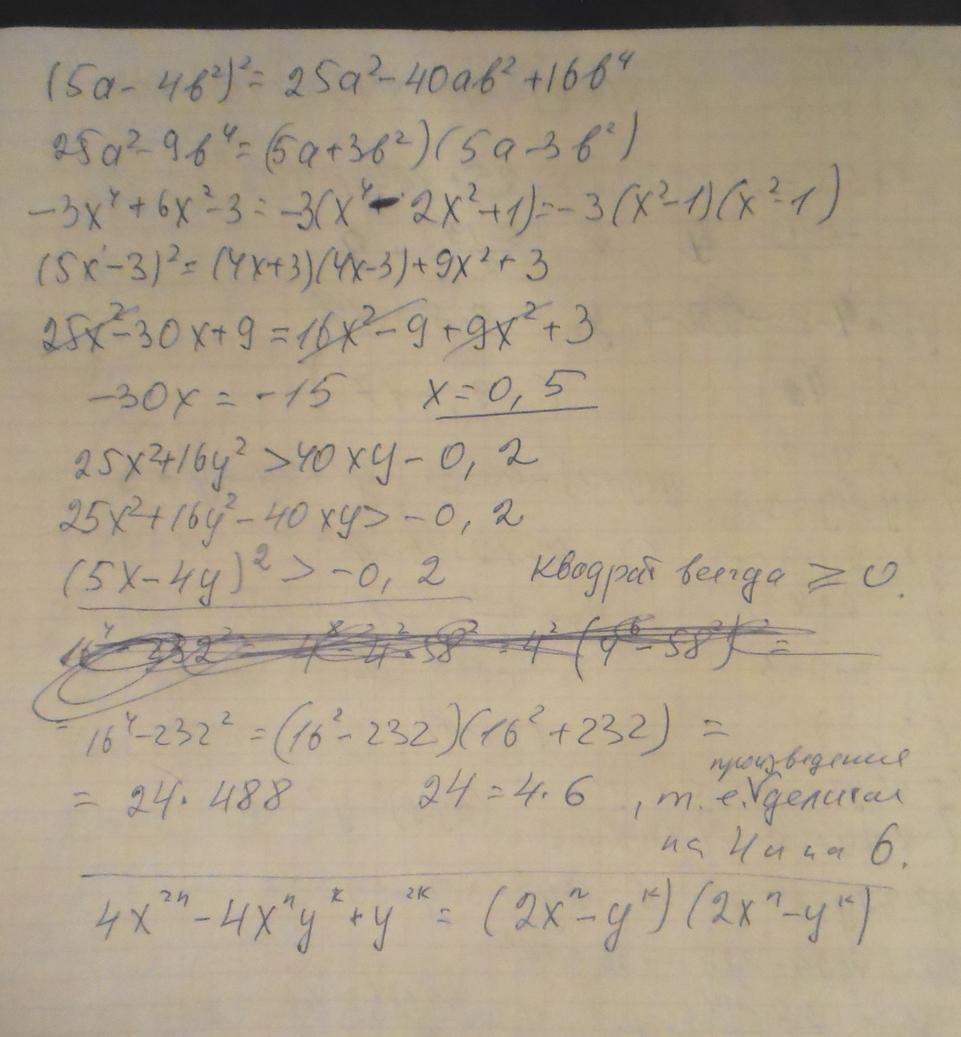 (5a - 4b²)² = 25a² - 40ab² + 16b⁴
25a² - 9b⁴ = (5a + 3b²)(5a - 3b²)
-3x⁴ + 6x² - 3 = -3(x⁴ - 2x² + 1) = -3(x² - 1)(x² - 1)
(5x - 3)² = (4x + 3)(4x - 3) + 9x² + 3
25x² - 30x + 9 = 16x² - 9 + 9x² + 3
-30x = -15 x = 0,5
25x² + 16y² > 40xy - 0,2
25x² + 16y² - 40xy > -0,2
(5x - 4y)² > -0,2 Квадрат всегда ⩾ 0.
16⁴ - 232² = (16² - 232)(16² + 232) =
= 24 · 488 24 = 4 · 6 , т. е. произведения делится
на 4 и на 6.
4x²ⁿ - 4xⁿyᵏ + y²ᵏ = (2xⁿ - yᵏ)(2xⁿ - yᵏ)